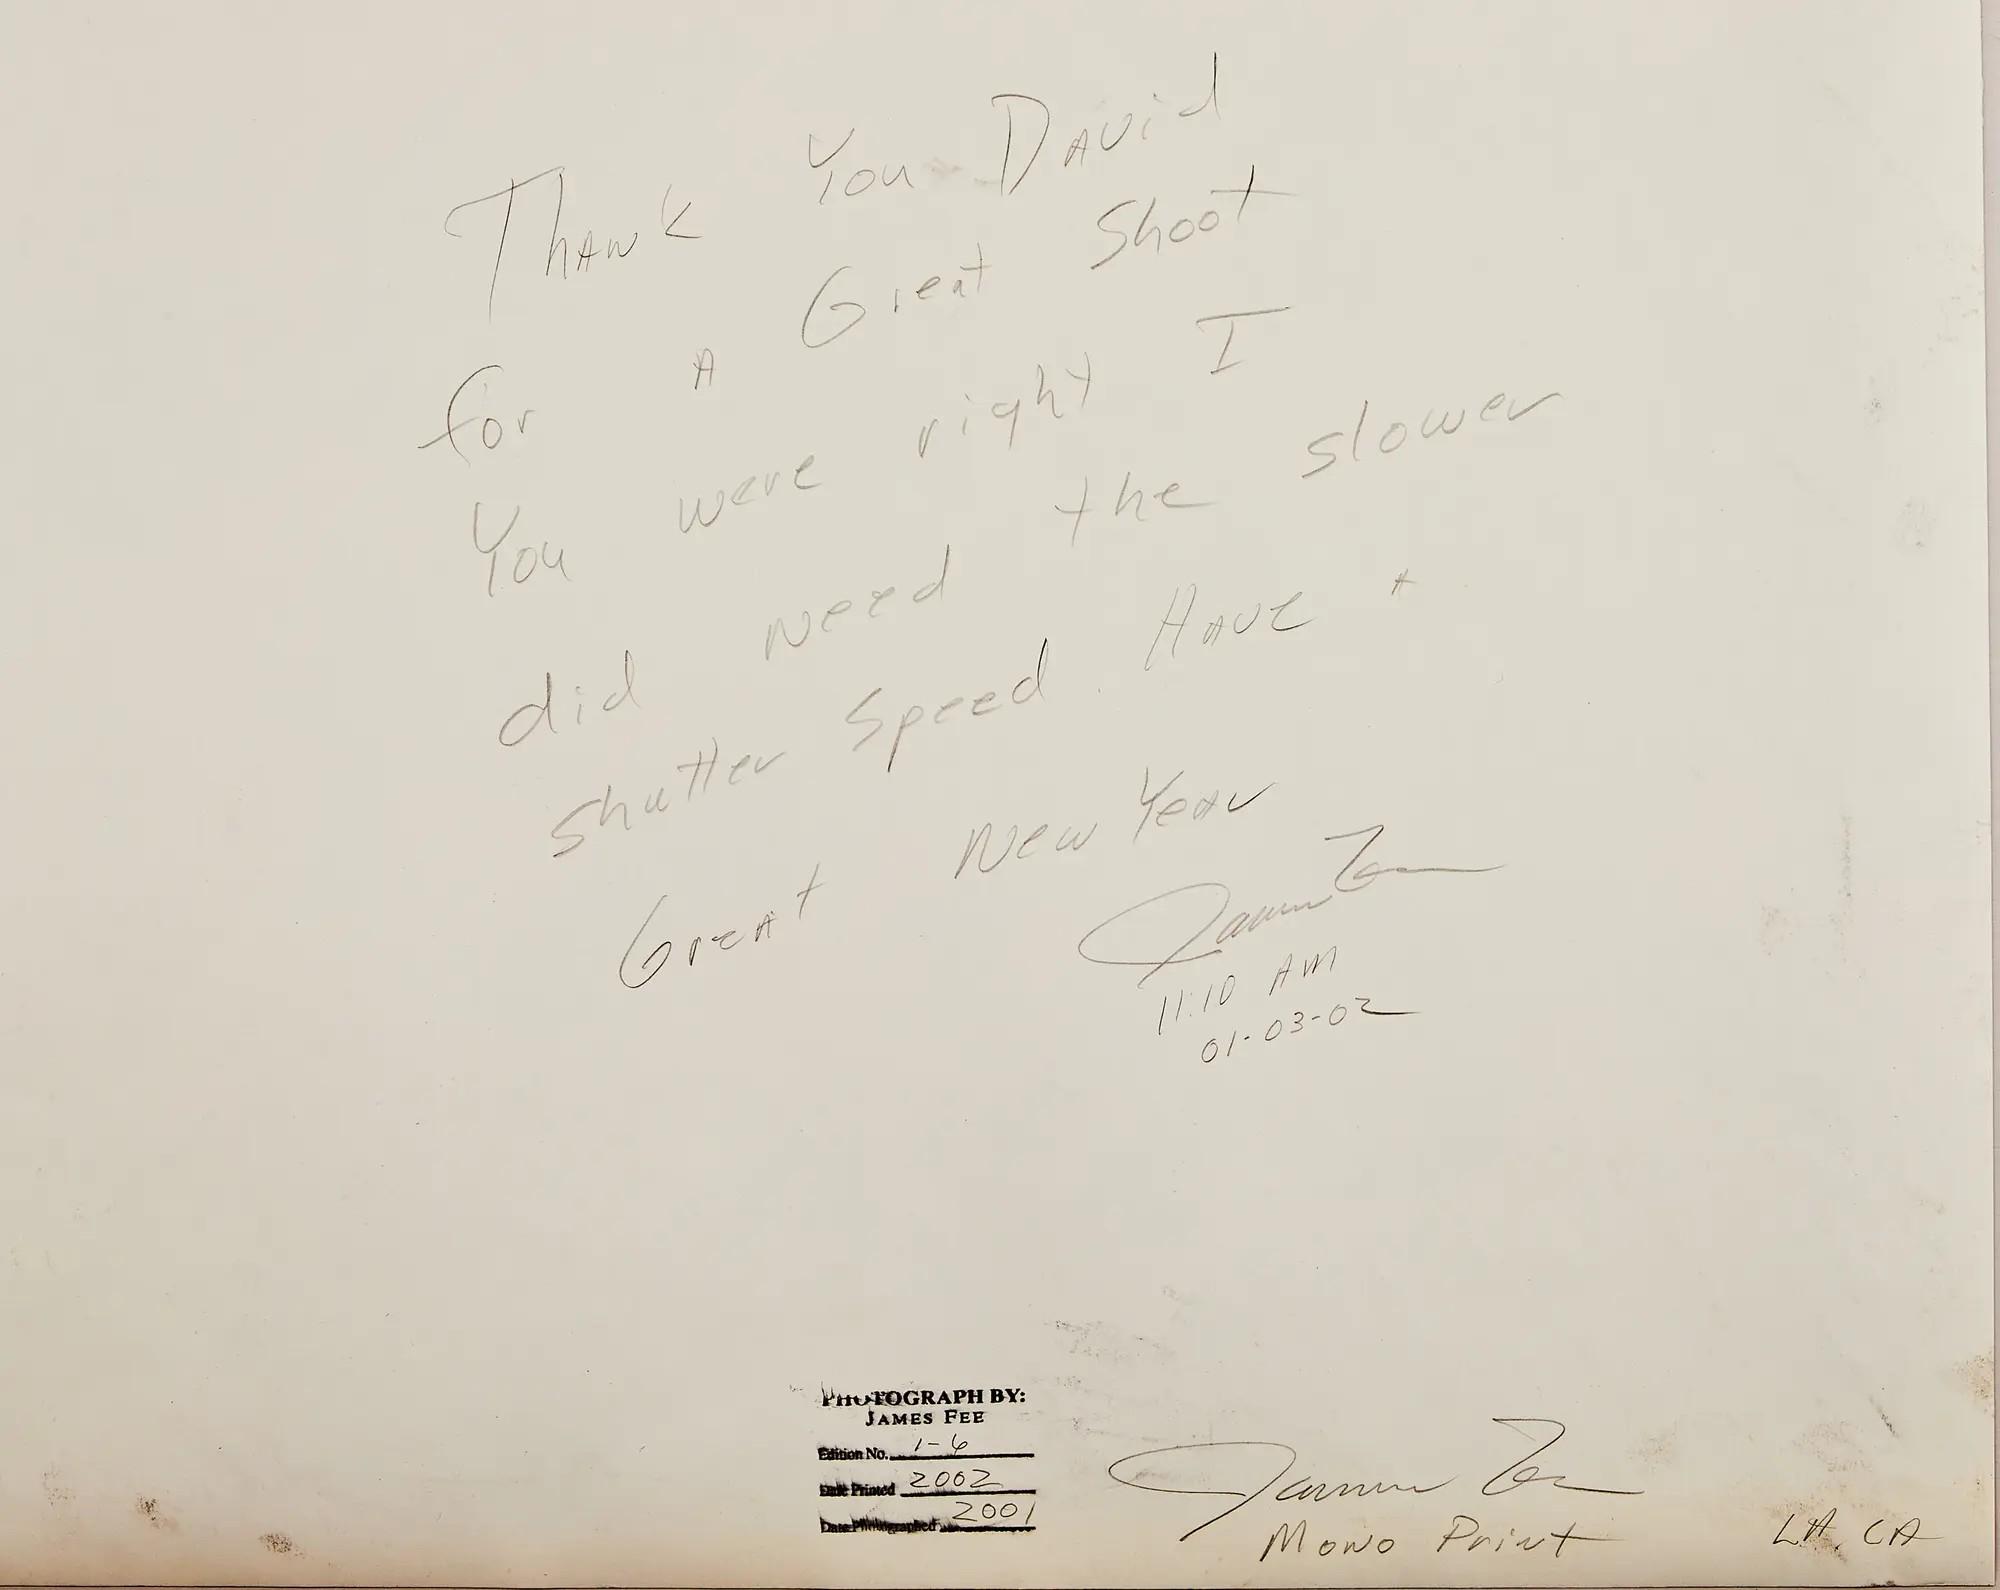 Thank You David
for A Great Shoot
You were right I
did need the slower
shutter speed. Have A
Great New Year
James Fee
11:10 AM
01-03-02
PHOTOGRAPH BY:
JAMES FEE
Edition No. 1-6
Date Printed 2002
Date Photographed 2001
James Fee
Mono Print
LA, CA